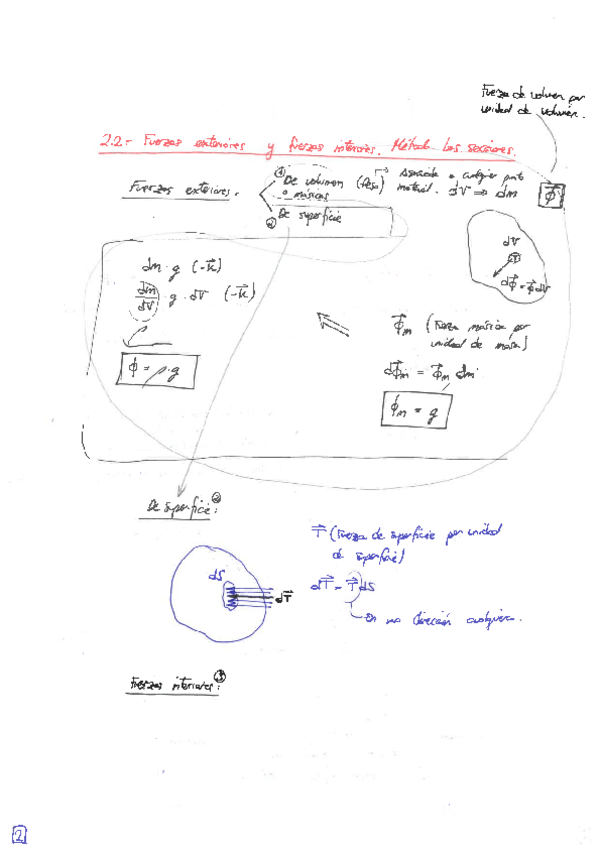 Fuerza de volumen por
unidad de volumen.
2.2- Fuerzas exteriores y fuerzas interiores. Método las secciones.
Fuerzas exteriores.
① De volumen (Peso) → Asociada a cualquier punto
o másicas material. dV ⇒ dm
② De superficie
Φ⃗
dV
dΦ⃗ = Φ⃗ dV
dm · g (-k⃗)
dm/dV · g · dV (-k⃗)
ϕ = ρ · g
Φ⃗m (Fuerza másica por
unidad de masa)
dΦ⃗m = Φ⃗m dm
ϕm = g
De superficie ②:
T⃗ (Fuerza de superficie por unidad
de superficie)
dT⃗ = T⃗ dS
En una dirección cualquiera.
dS
dT⃗
Fuerzas interiores ③:
2